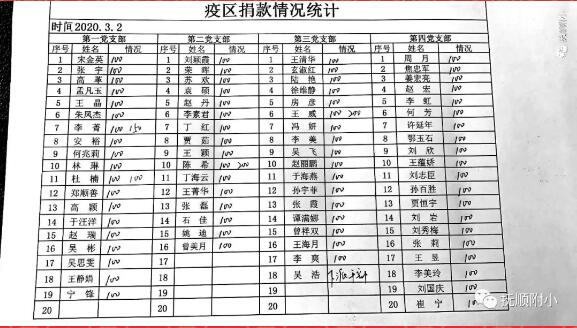 疫区捐款情况统计
时间2020.3.2
第一党支部 第二党支部 第三党支部 第四党支部
序号 姓名 情况 序号 姓名 情况 序号 姓名 情况 序号 姓名 情况
1 宋金英 100 1 刘颖霞 100 1 王清华 100 1 周月 100
2 张宇 100 2 荣晖 100 2 玄淑红 100 2 焦忠军 100
3 高革 100 3 苏欢 100 3 陆艳 100 3 姜宏亮 100
4 孟凡玉 100 4 袁硕 100 4 徐维静 100 4 赵宏 100
5 王晶 100 5 赵丹 100 5 房彦 100 5 李虹 100
6 朱凤杰 100 6 李素君 100 6 王威 100 200 6 何芳 100
7 李菁 100 150 7 丁红 100 7 冯妍 100 7 许延年 100
8 安裕 100 8 贾茹 100 8 李美 100 8 鄂玉石 100
9 何兆莉 100 9 王颖 100 9 吴飞 100 9 刘欣 100
10 林琳 100 10 陈希 100 200 10 赵丽鹏 100 10 王蕴娇 100
11 杜楠 100 100 11 丁海云 100 11 于海燕 100 11 刘志臣 100
12 郑顺善 100 12 王菁华 100 12 孙宇菲 100 12 孙百胜 100
13 高颖 100 13 张磊 100 13 张霞 100 13 贾恒宇 100
14 于汪洋 100 14 石佳 100 14 谭满娜 100 14 刘岩 100
15 赵瑞 100 15 姚迪 100 15 曾祥双 100 15 刘秀梅 100
16 吴彬 100 16 曾美月 100 16 王海月 100 16 张莉 100
17 吴思雯 100 17 17 李爽 100 17 王昱 100
18 王静娟 100 18 18 吴浩 18 李美玲 100
19 宁锋 100 19 19 刘国庆 100
20 20 20 崔宁 100
抚顺附小